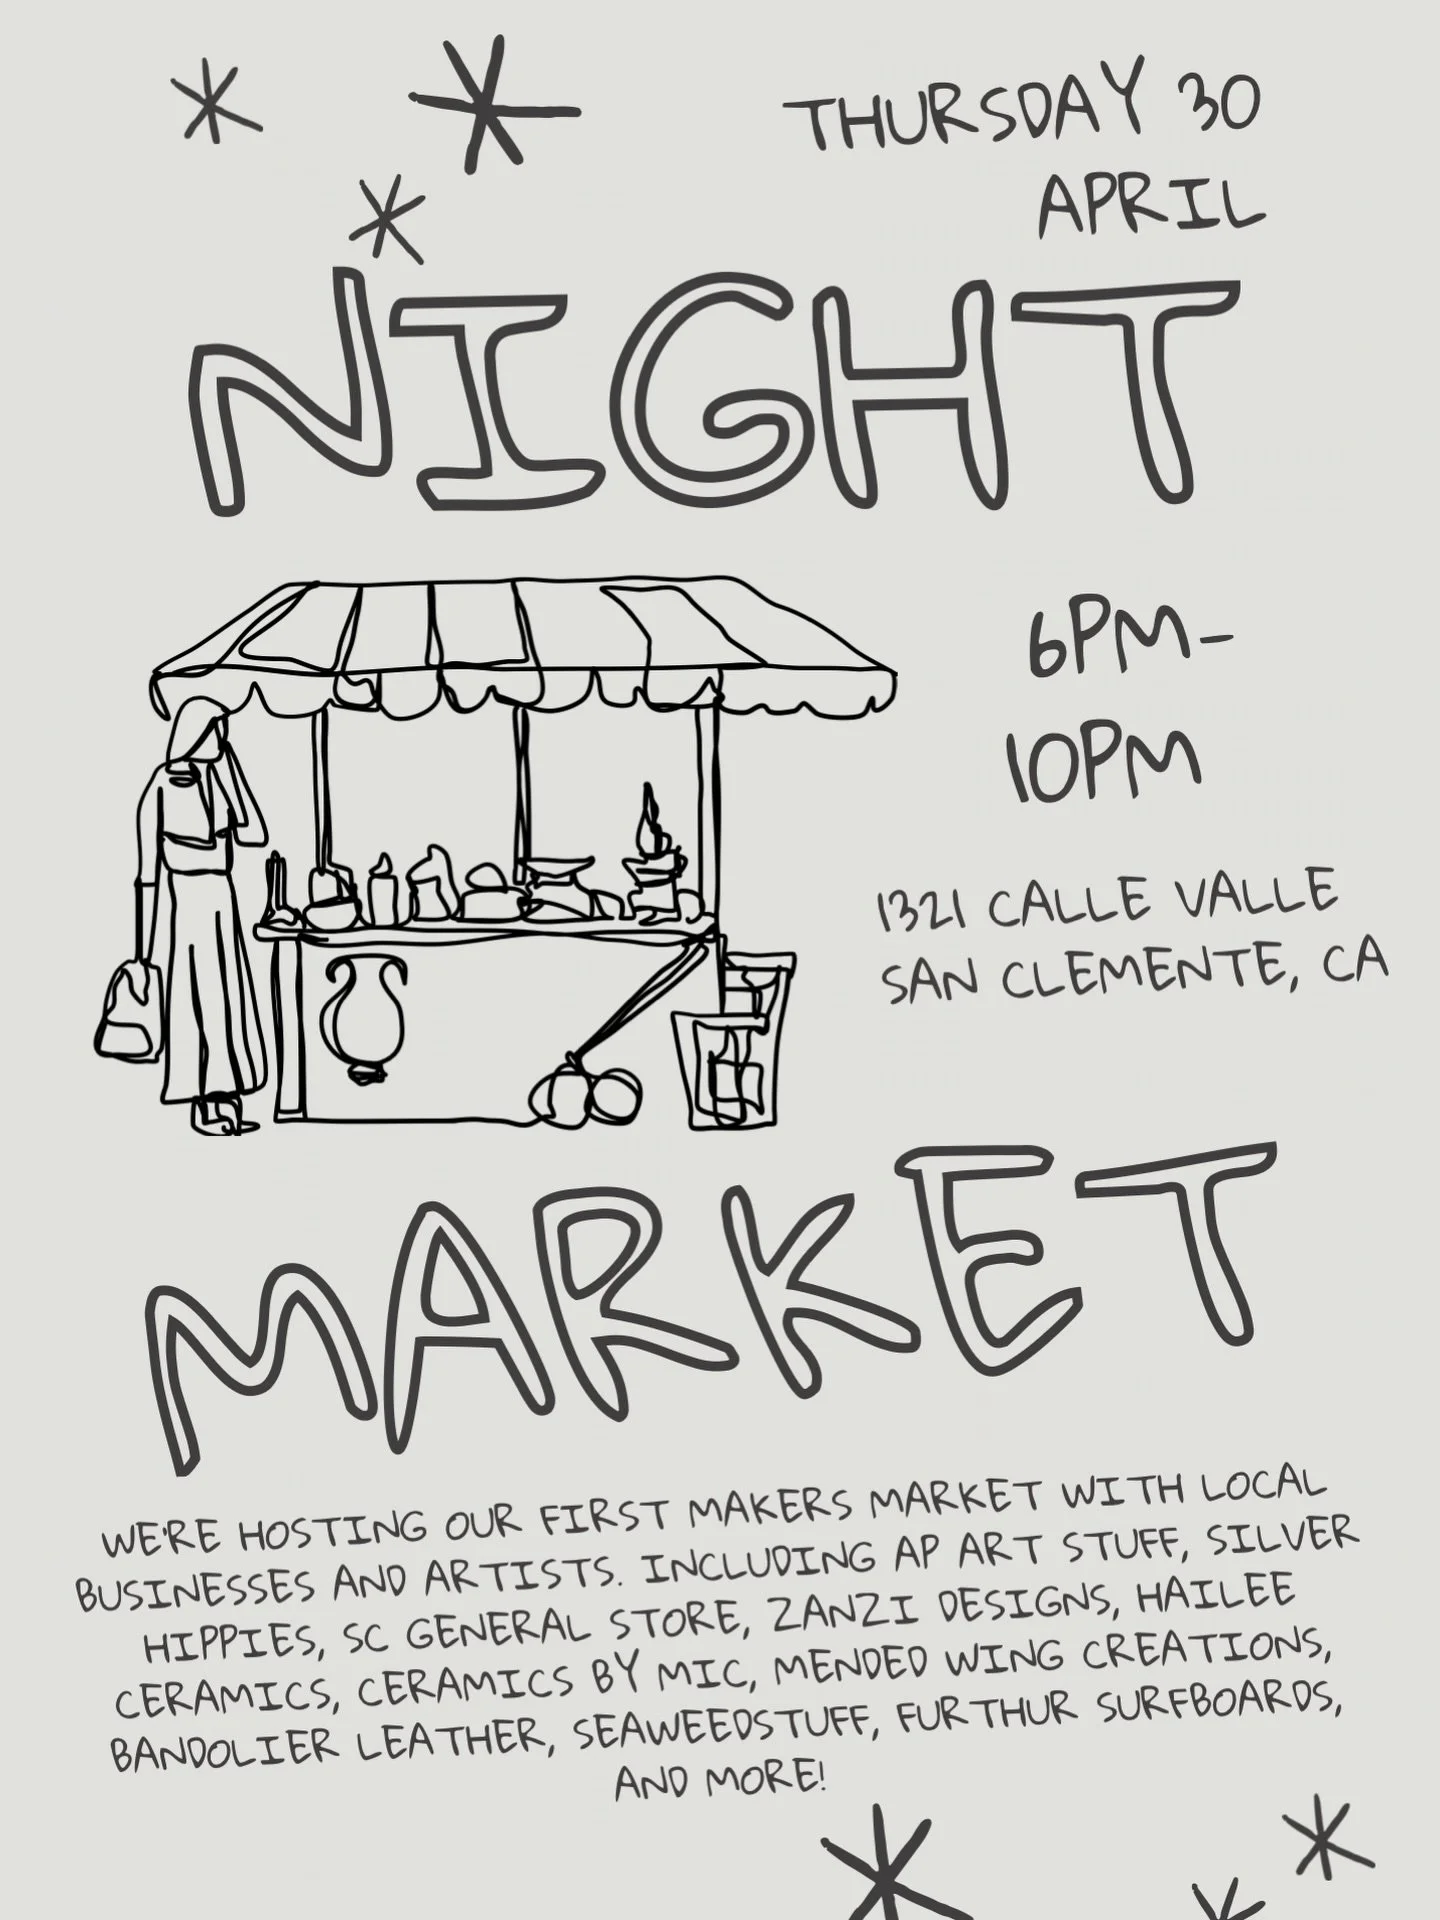 THURSDAY 30
APRIL
NIGHT
6PM-
10PM
1321 CALLE VALLE
SAN CLEMENTE, CA
MARKET
WE'RE HOSTING OUR FIRST MAKERS MARKET WITH LOCAL
BUSINESSES AND ARTISTS. INCLUDING AP ART STUFF, SILVER
HIPPIES, SC GENERAL STORE, ZANZI DESIGNS, HAILEE
CERAMICS, CERAMICS BY MIC, MENDED WING CREATIONS,
BANDOLIER LEATHER, SEAWEEDSTUFF, FURTHUR SURFBOARDS,
AND MORE!